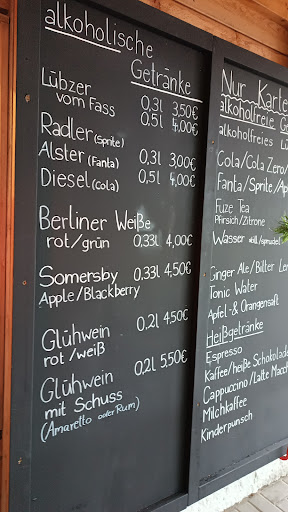 alkoholische
Getränke
Lübzer 0,3l 3,50€
vom Fass 0,5l 4,00€
Radler (Sprite)
Alster (Fanta) 0,3l 3,00€
Diesel (Cola) 0,5l 4,00€
Berliner Weiße
rot/grün 0,33l 4,00€
Somersby 0,33l 4,50€
Apple/Blackberry
Glühwein 0,2l 4,50€
rot/weiß
Glühwein 0,2l 5,50€
mit Schuss
(Amaretto oder Rum)
Nur Karte
alkoholfreie
alkoholfreies
Cola/Cola Zero/
Fanta/Sprite/
Fuze Tea
Pfirsich/Zitrone
Wasser still/sprudel
Ginger Ale/Bitter
Tonic Water
Apfel- & Orangensaft
Heißgetränke
Espresso
Kaffee/heiße Schokolade
Cappuccino/Latte
Milchkaffee
Kinderpunsch